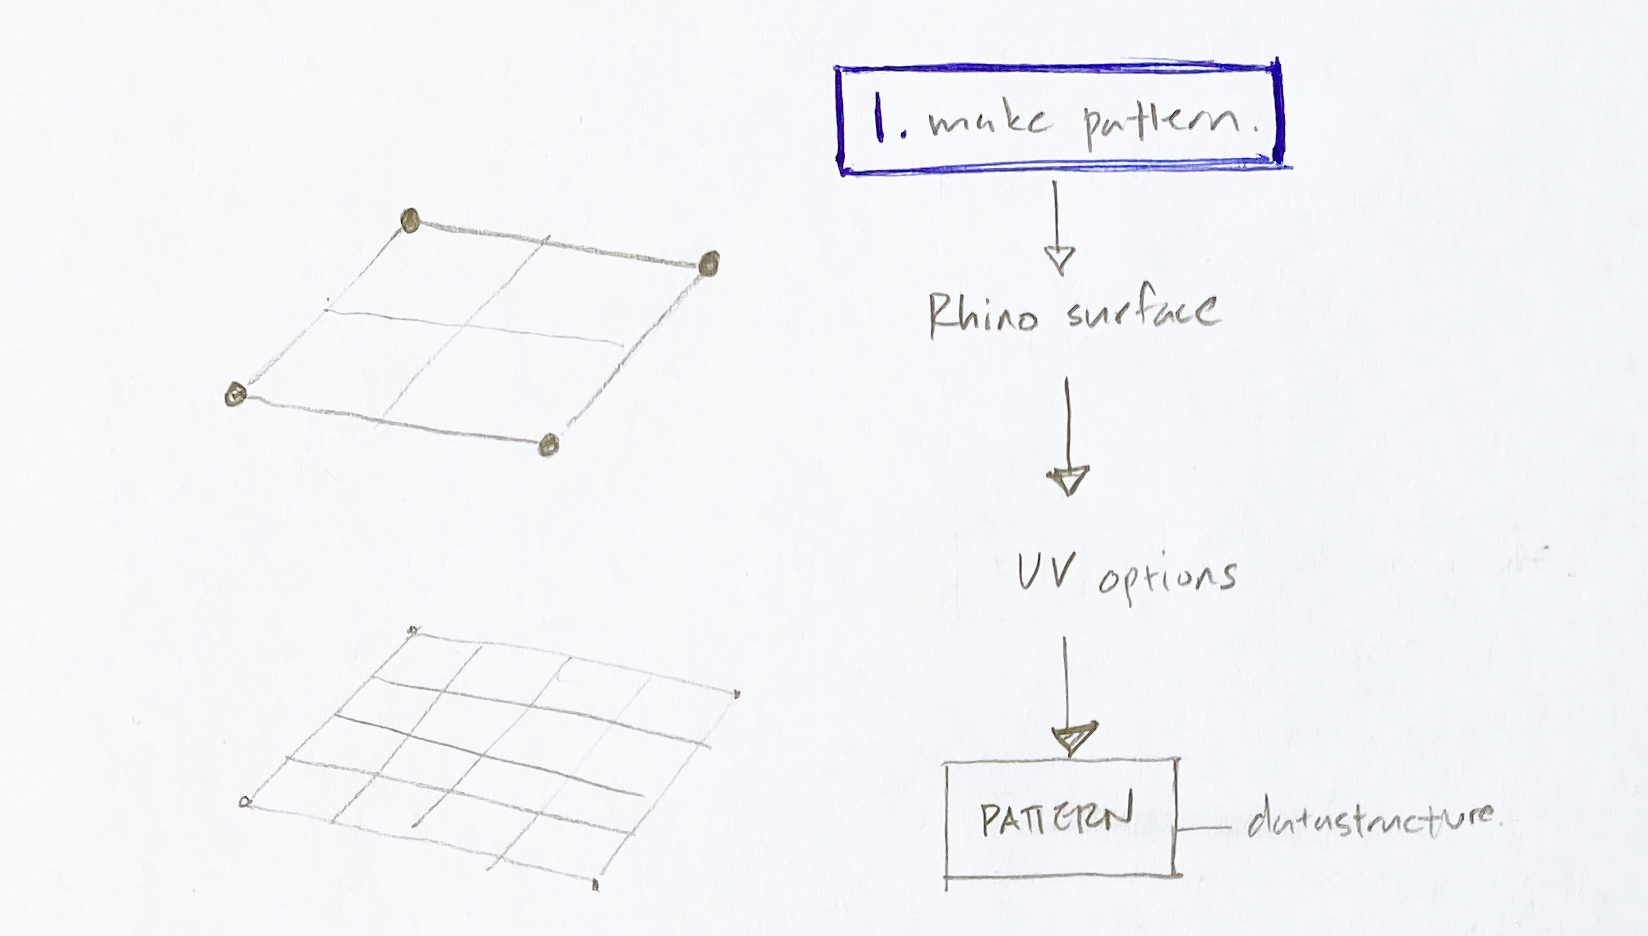 1. make pattern.
Rhino surface
UV options
PATTERN
datastructure.